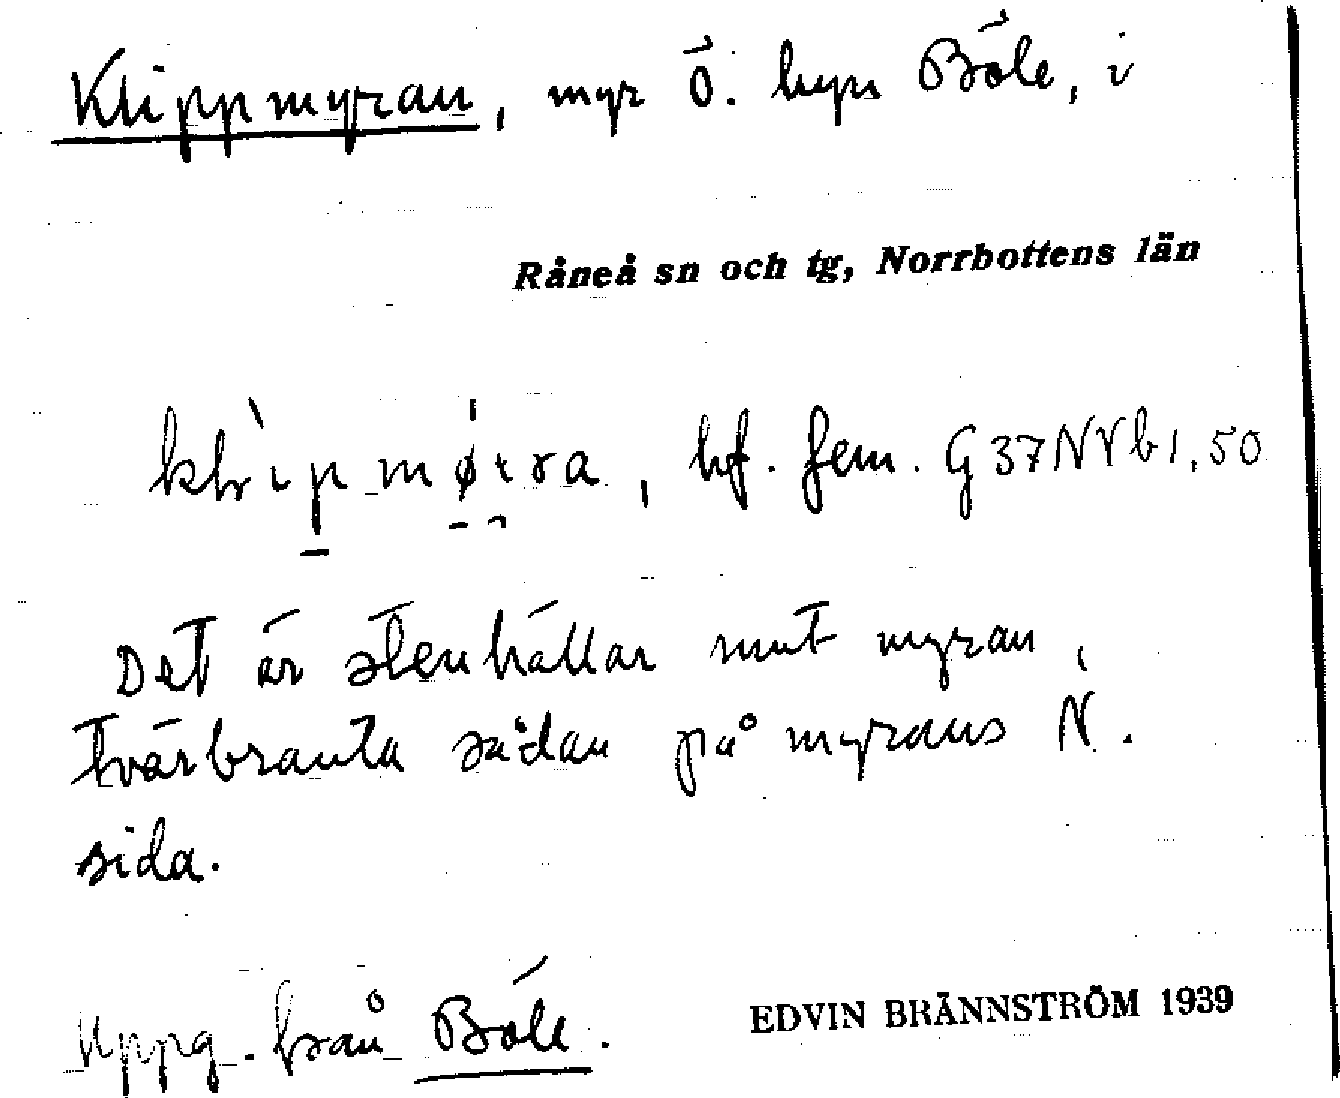 Klippmyran, myr Ö. byn Böle, i
Råneå sn och tg, Norrbottens län
bf. fem. G 37 NVb 1,50
Det är stenhällar mot myran,
tvärbranta sådan på myrans N.
sida.
Uppg. från Böle.
EDVIN BRÄNNSTRÖM 1939